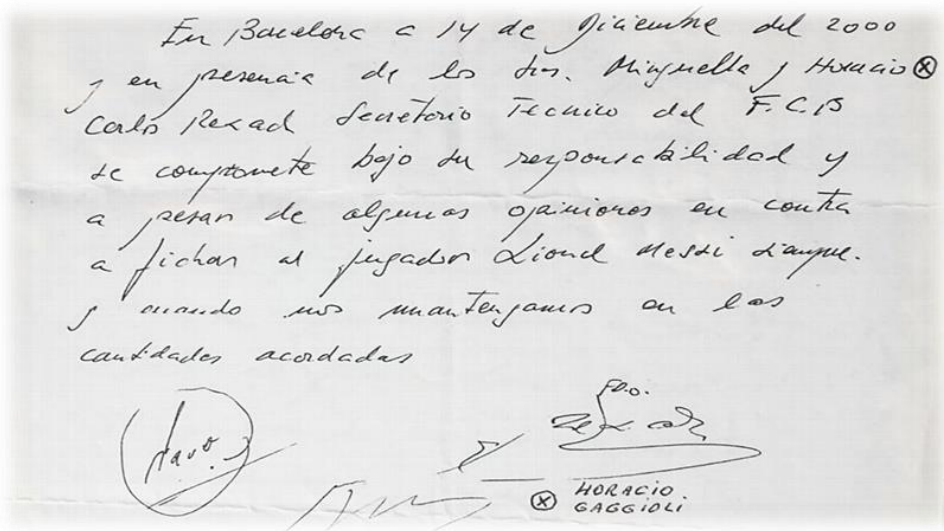 En Barcelona a 14 de Diciembre del 2000
y en presencia de los Srs. Minguella y Horacio ⓧ
Carlos Rexach Secretario Tecnico del F.C.B
se compromete bajo su responsabilidad y
a pesar de algunas opiniones en contra
a fichar al jugador Lionel Messi siempre.
y cuando nos mantengamos en las
cantidades acordadas
FDO.
ⓧ HORACIO
GAGGIOLI